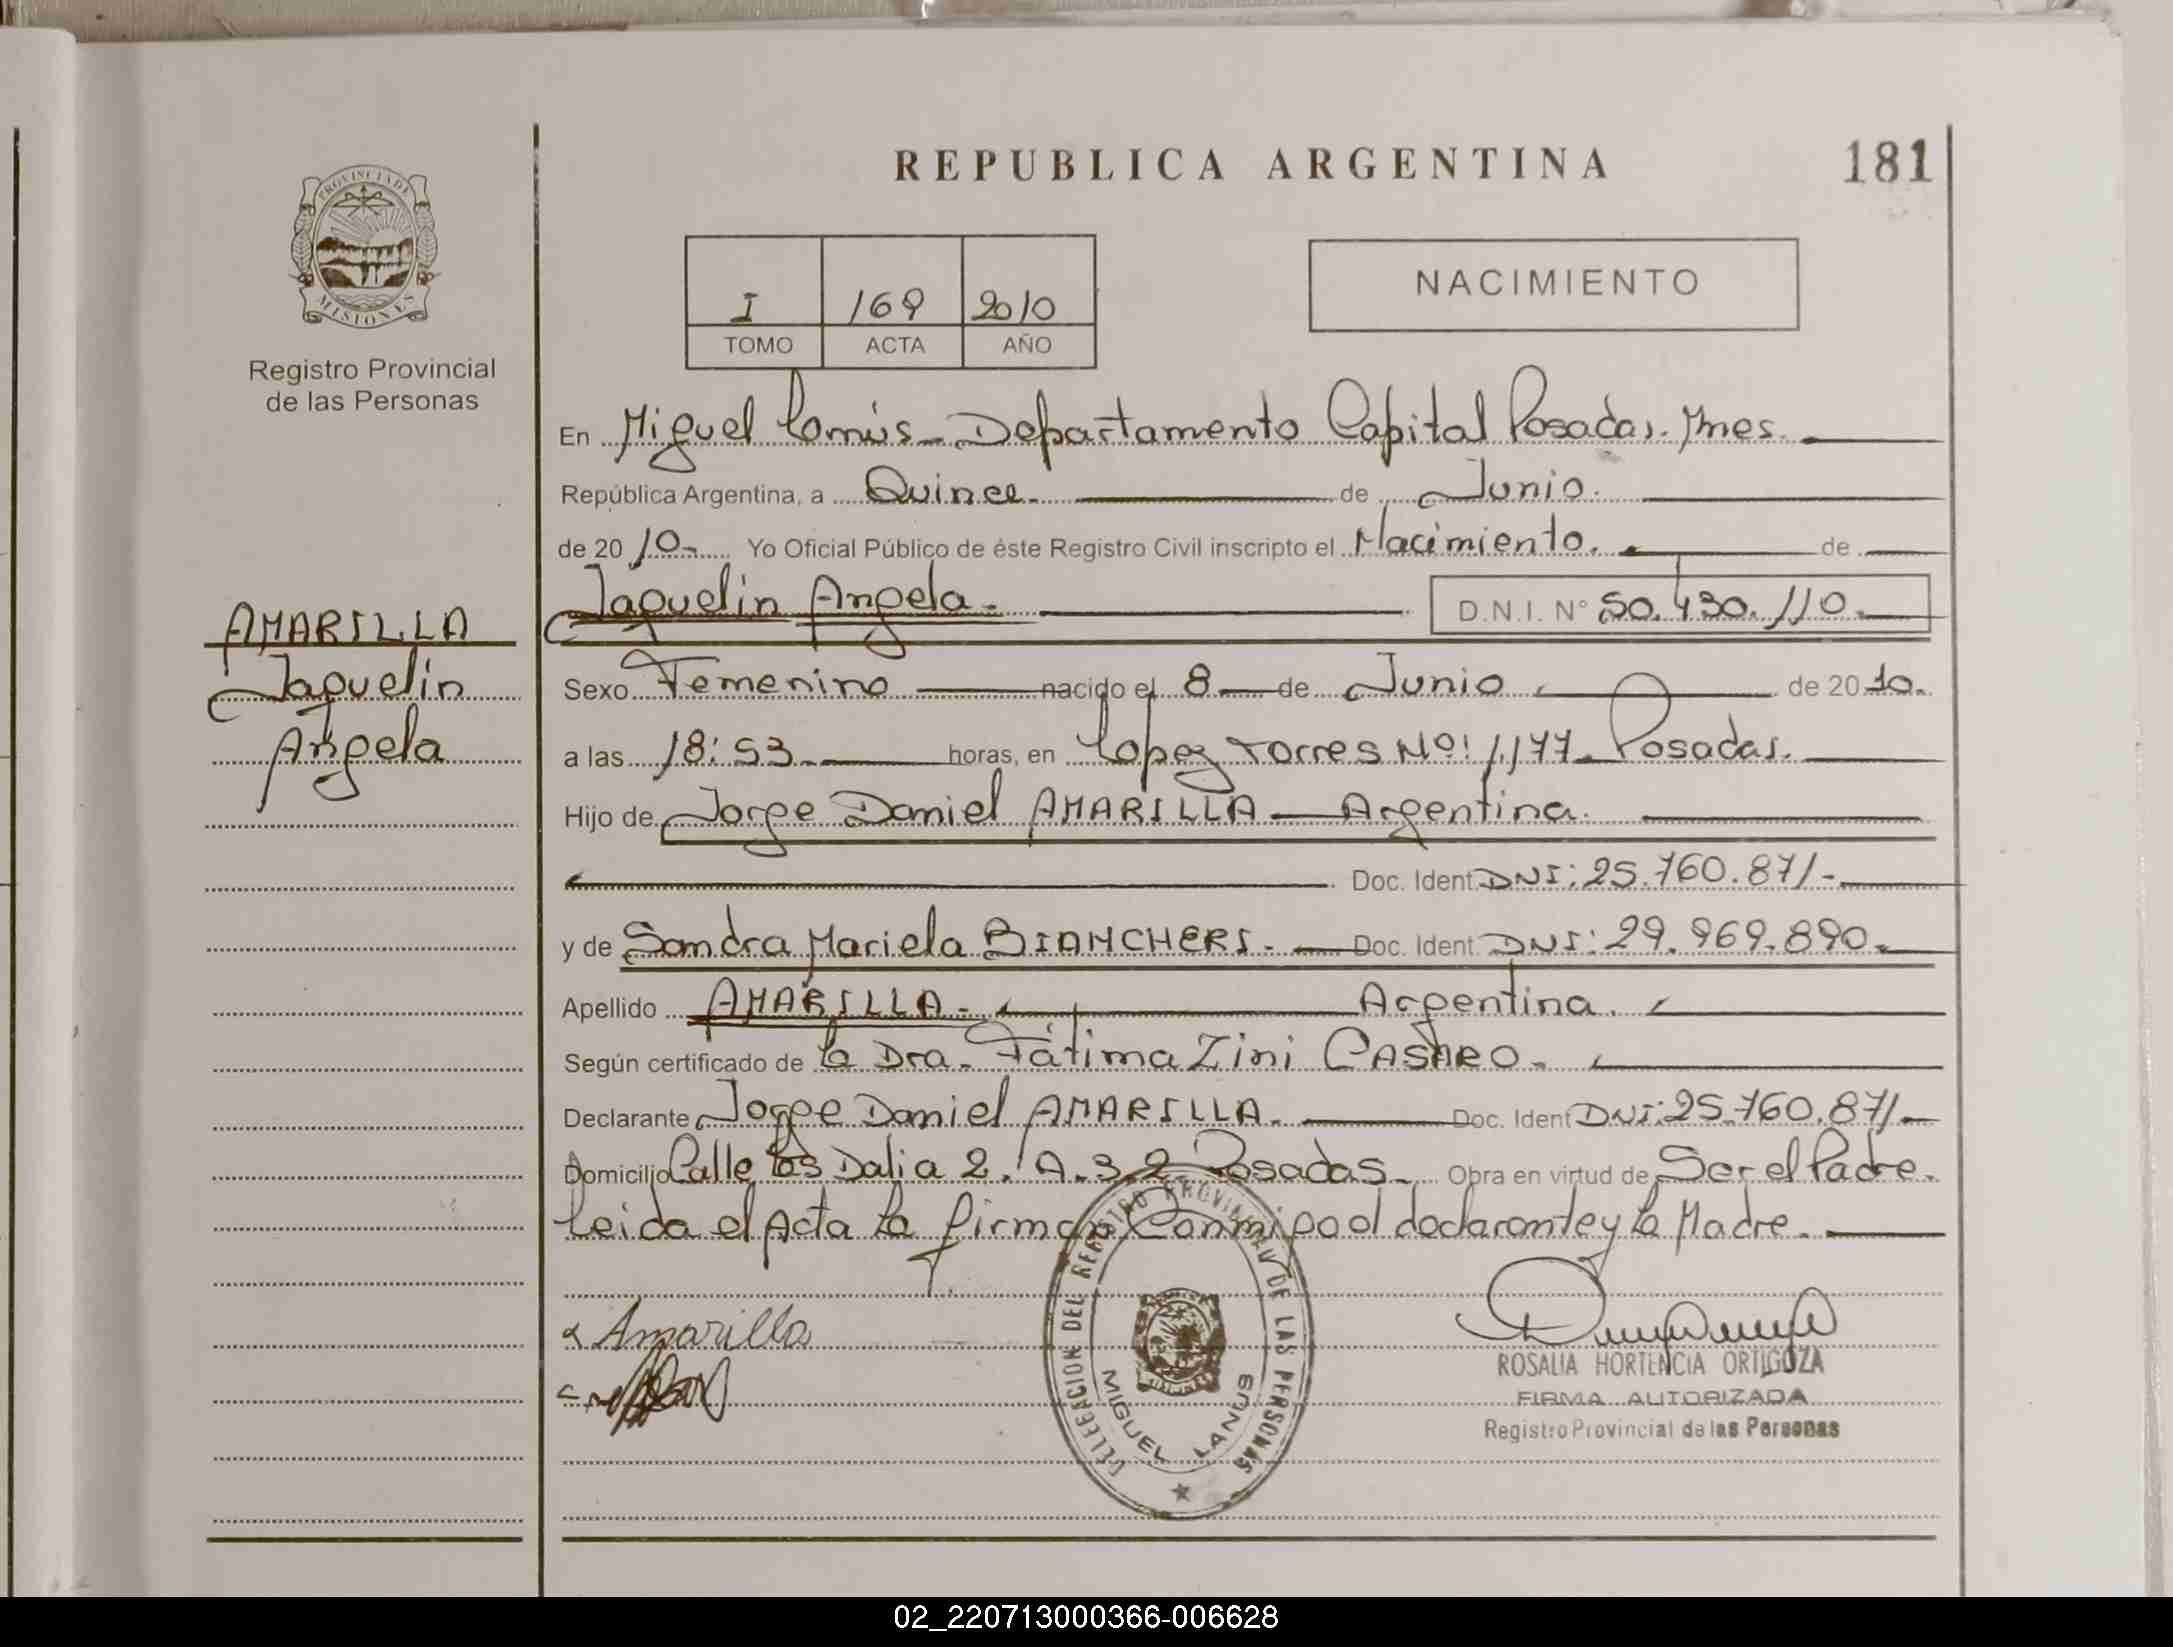 REPUBLICA ARGENTINA
181
PROVINCIA DE
MISIONES
Registro Provincial
de las Personas
I 169 2010
TOMO ACTA AÑO
NACIMIENTO
En Miguel Lanús - Departamento Capital Posadas. Mnes.
República Argentina, a Quince. de Junio.
de 2010- Yo Oficial Público de éste Registro Civil inscripto el Nacimiento. de
Jaquelin Angela - D.N.I. N° 50.430.110.
AMARILLA
Jaquelin
Angela
Sexo Femenino nacido el 8 de Junio de 2010.
a las 18:53 horas, en Lopez Torres Nº: 1.177 - Posadas.
Hijo de Jorge Daniel AMARILLA - Argentina.
Doc. Ident. DNI: 25.760.871-
y de Sandra Mariela BIANCHERI. Doc. Ident. DNI: 29.969.890.
Apellido AMARILLA - Argentina.
Según certificado de la Dra. Fátima Zini CASTRO.
Declarante Jorge Daniel AMARILLA. Doc. Ident DNI: 25.760.871-
Domicilio Calle las Dalia 2. A. 3.2 Posadas. Obra en virtud de Ser el Padre.
Leida el Acta la firman Conmigo el declarante y la Madre.
Amarilla
DELEGACION DEL REGISTRO PROVINCIAL DE LAS PERSONAS
MIGUEL LANUS
ROSALIA HORTENCIA ORTIGOZA
FIRMA AUTORIZADA
Registro Provincial de las Personas
02_220713000366-006628